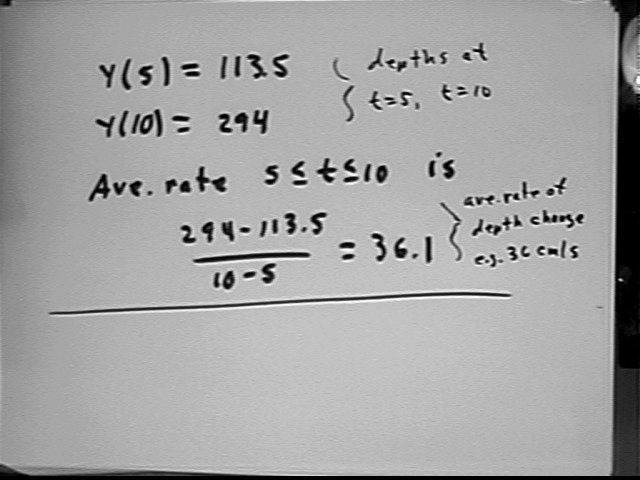 Y(5) = 113.5 depths at
Y(10) = 294 t=5, t=10
Ave. rate 5 ≤ t ≤ 10 is
294-113.5 / 10-5 = 36.1
ave. rate of
depth change
e.g. 36 cm/s